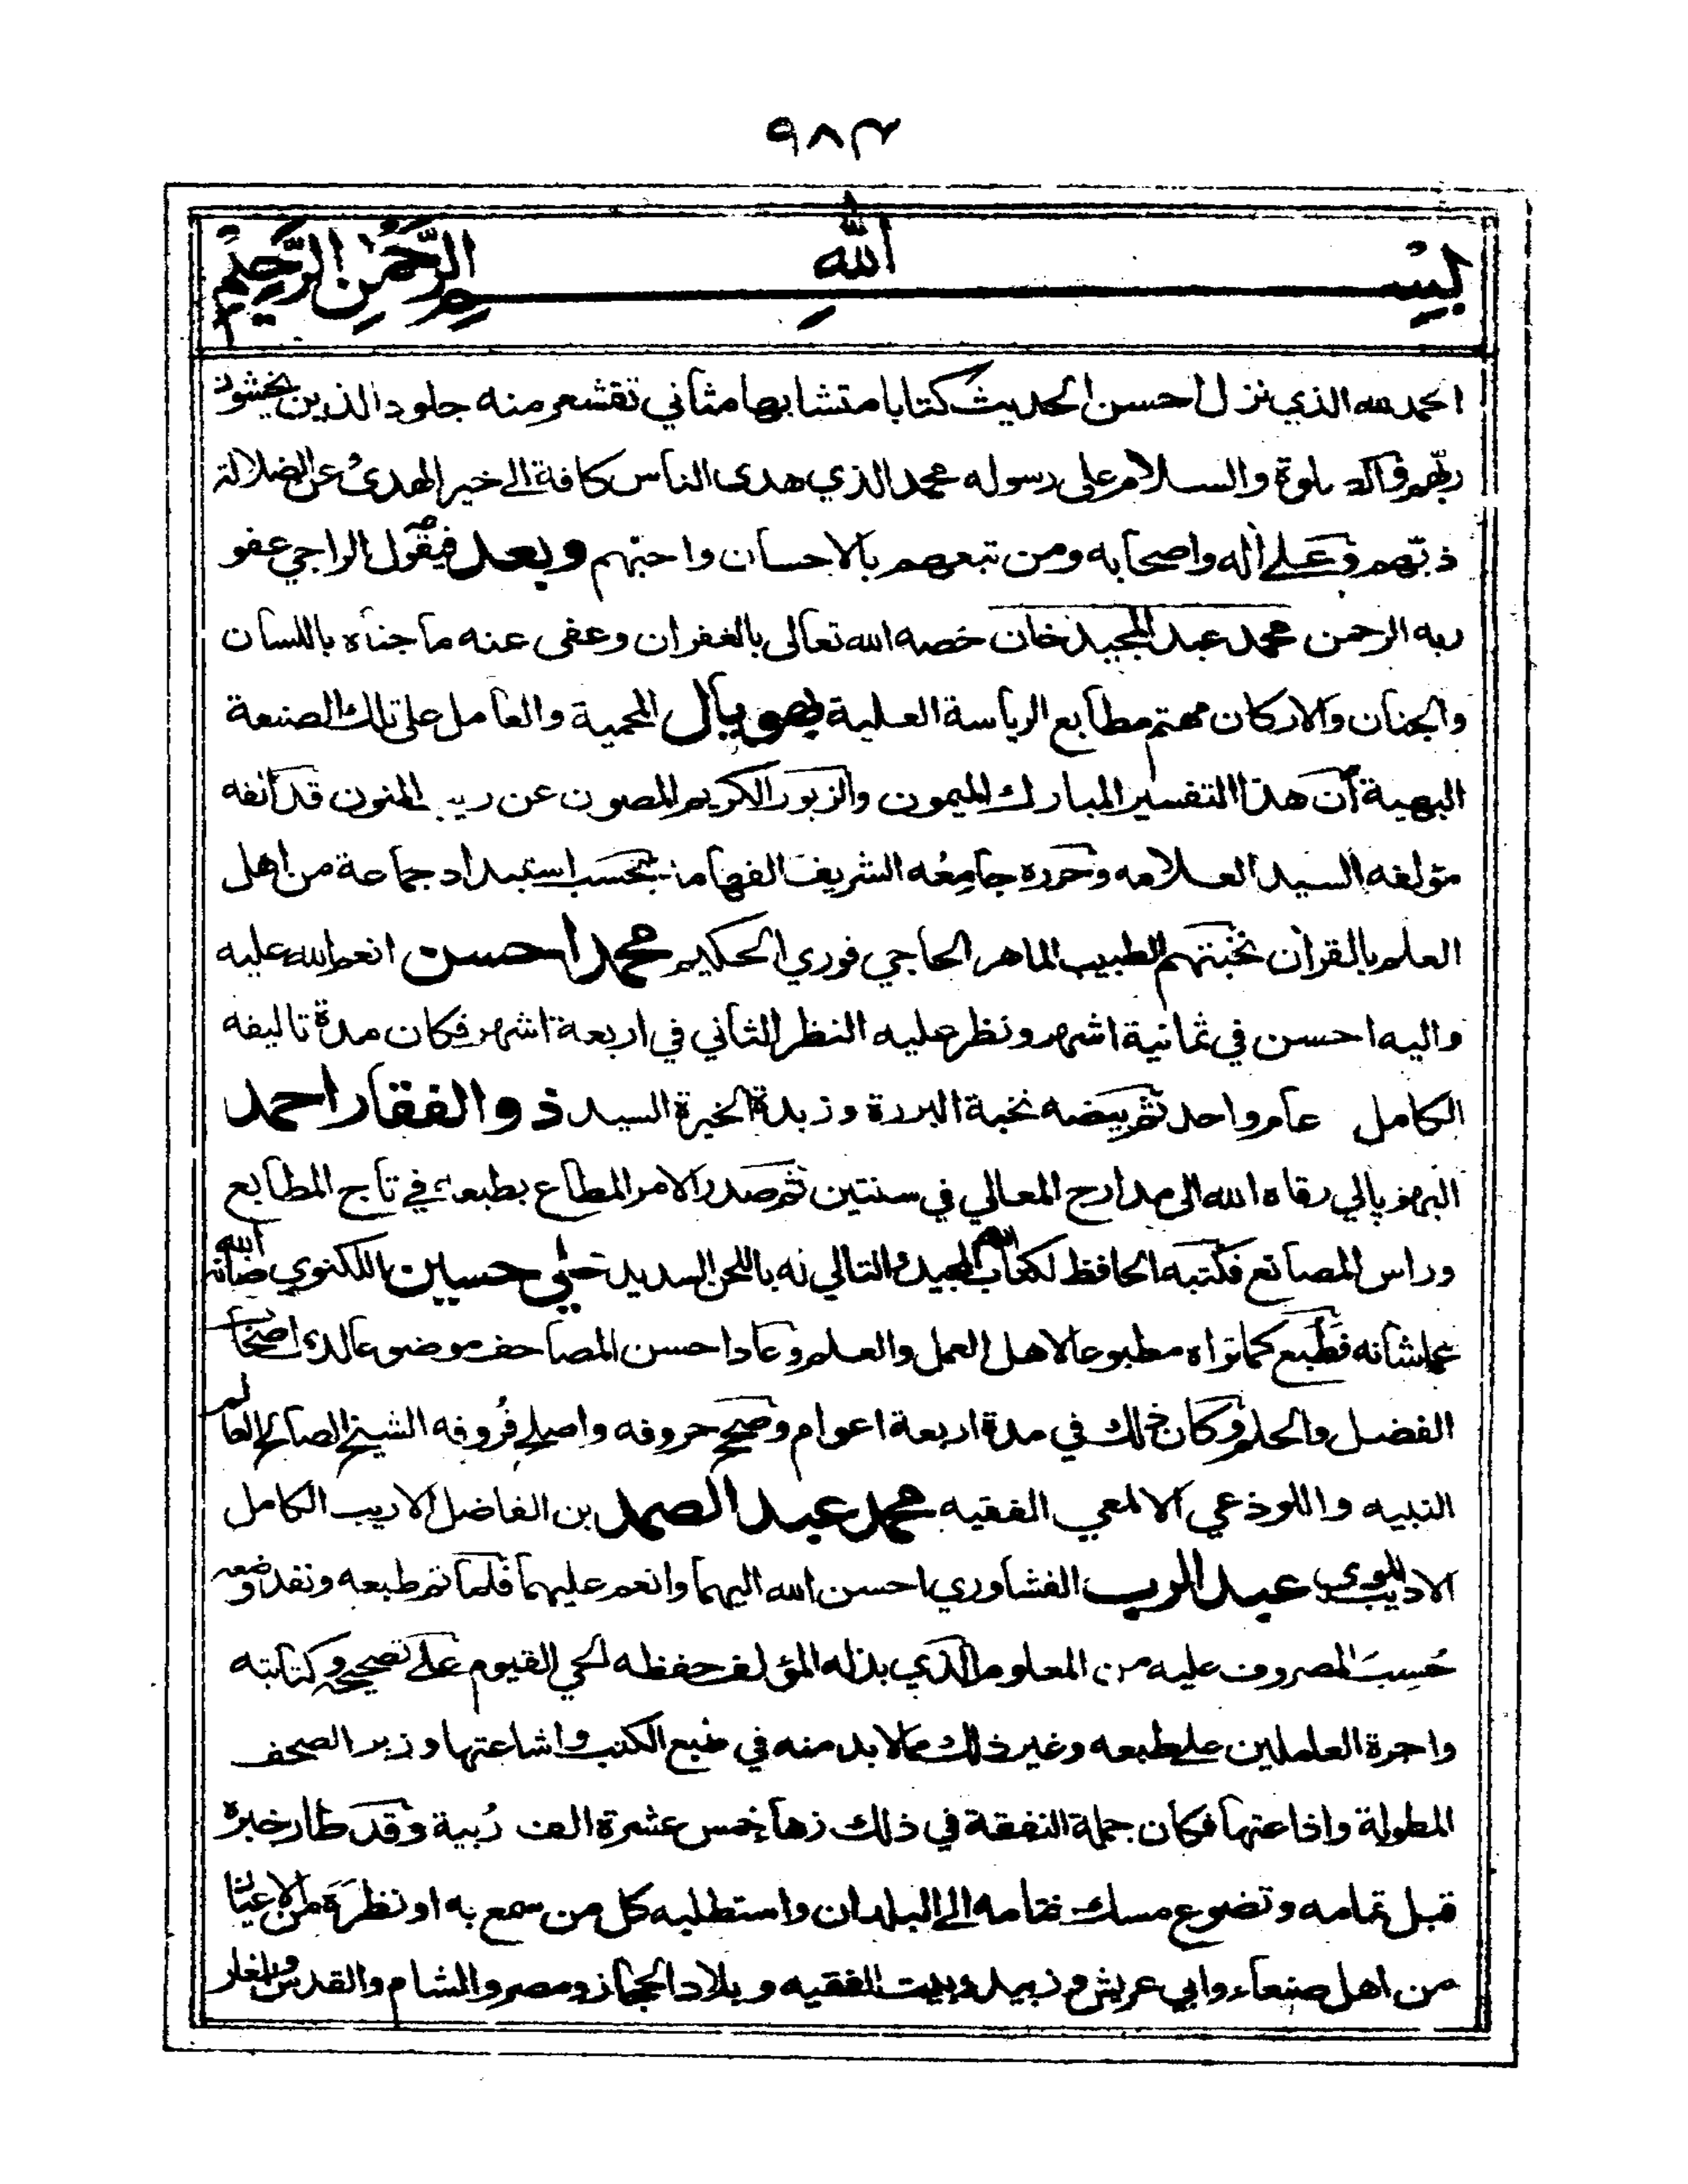 ٩٨٣
بسم الله الرحمن الرحيم
الحمد لله الذي نزل احسن الحديث كتابا متشابها مثاني تقشعر منه جلود الذين يخشون
ربهم والصلوة والسلام على رسوله محمد الذي هدى الناس كافة الى خير الهدى عن الضلالة
وعلى اله واصحابه ومن تبعهم بالاحسان واحبهم وبعد فيقول الراجي عفو
ربه الرحمن محمد عبد المجيد خان خصه الله تعالى بالغفران وعفى عنه ما جناه باللسان
والجنان والاركان مهتم مطابع الرياسة العلية بهوپال المحمية والعامل على تلك الصنعة
البهية أن هذا التفسير المبارك الميمون والزبور الكريم المصون عن ريب المنون قد ألفه
مؤلفه السيد العلامه وحرره جامعه الشريف الفهامة بحسب استبداد جماعة من اهل
العلم بالقران نخبتهم الطبيب الماهر الحاجي فوري الحكيم محمد احسن انعم الله عليه
واليه احسن في ثمانية اشهر ونظر عليه النظر الثاني في اربعة اشهر فكان مدة تاليفه
الكامل عام واحد ثم بيضه نخبة البررة وزبدة الخيرة السيد ذو الفقار احمد
البهوپالي رقاه الله الى مدارج المعالي في سنتين ثم صدر الامر المطاع بطبعه في تاج المطابع
وراس المصانع فكتبه الحافظ لكتاب الله المجيد والتالي له باللحن السديد علي حسين اللكنوي صانه الله
عما شانه فطبع كما تراه مطبوعا لاهل العمل والعلم وعادا حسن المصاحف موضوعا لدى اصحاب
الفضل والحلم وكان ذلك في مدة اربعة اعوام وصحح حروفه واصلح فروفه الشيخ الصالح العالم
النبيه واللوذعي الالمعي الفقيه محمد عبد الصمد بن الفاضل الاريب الكامل
الاديب المولوي عبد الرب الفشاوري احسن الله اليهما وانعم عليهما فلما تم طبعه ونفد وضعه
حسب المصروف عليه من المعلوم الذي بذله المؤلف حفظه الحي القيوم على تصحيحه وكتابته
واجرة العاملين على طبعه وغير ذلك مما لا بد منه في طبع الكتب واشاعتها وزبر الصحف
المطولة واذاعتها فكان جملة النفقة في ذلك زهاء خمس عشرة الف ربية وقد طار خبره
قبل تمامه وتضوع مسك ختامه الى البلدان واستطلبه كل من سمع به او نظره من الاعيان
من اهل صنعاء وابي عريش وزبيد وبيت الفقيه وبلاد الحجاز ومصر والشام والقدس